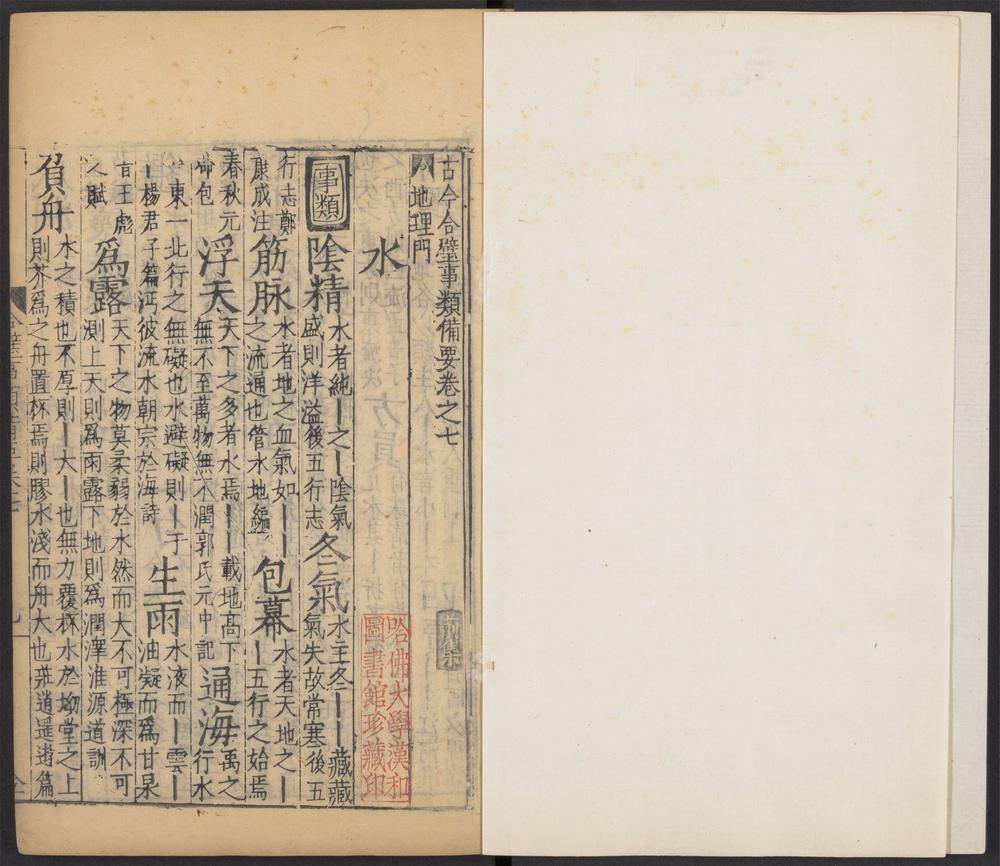 古今合璧事類備要卷之七
地理門
水
事類
陰精
水者純丨之丨陰氣
盛則洋溢後五行志
冬氣
水王冬丨丨藏藏
氣失故常寒後五
行志鄭
康成注
筋脉
水者地之血氣如丨丨
之流通也管水地編
包幕
水者天地之丨
丨五行之始焉
春秋元
命包
浮天
天下之多者水焉丨丨載地高下
無不至萬物無不潤郭氏元中記
通海
禹之
行水
東一北行之無礙也水避礙則丨于
丨楊君子篇沔彼流水朝宗於海詩
生雨
水液而丨雲丨
油凝而爲甘泉
言王彪
賦
爲露
天下之物莫柔弱於水然而大不可極深不可
測上天則爲雨露下地則爲潤澤淮源道訓
負舟
水之積也不厚則丨大丨也無力覆杯水於坳堂之上
則芥爲之舟置杯焉則膠水淺而舟大也莊逍遥遊篇
哈佛大學漢和
圖書館珍藏印